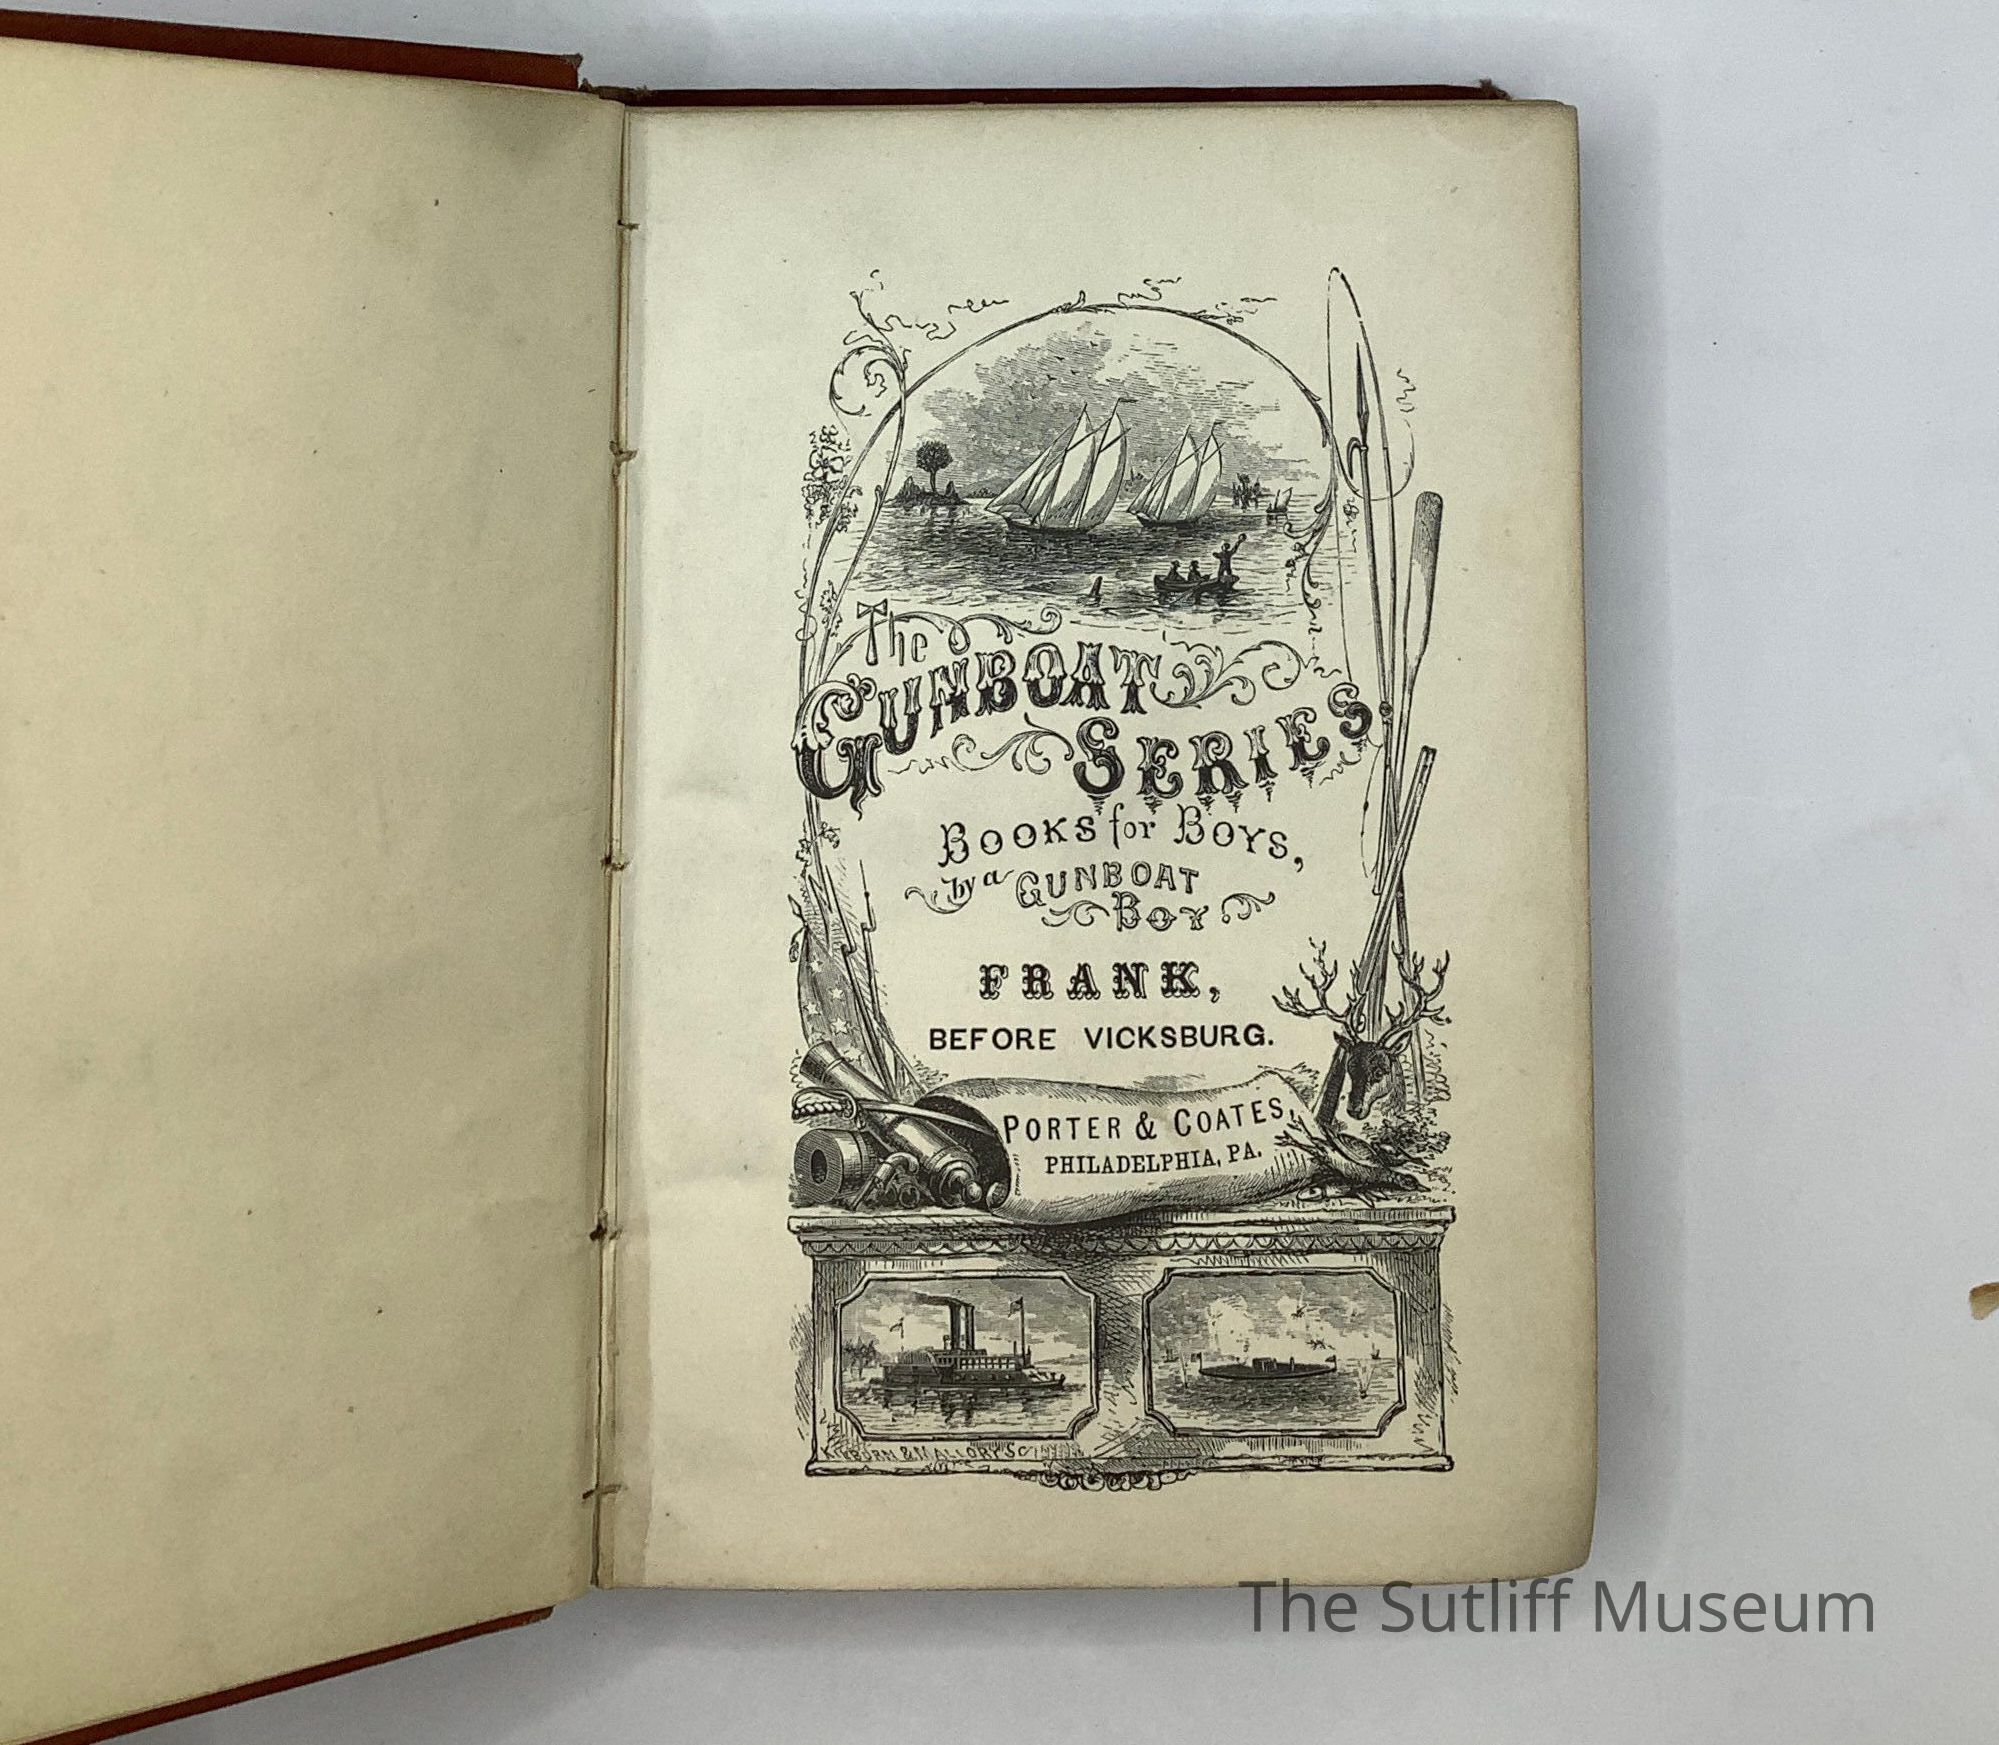 The
GUNBOAT
SERIES
BOOKS for BOYS,
by a GUNBOAT
BOY.
FRANK,
BEFORE VICKSBURG.
PORTER & COATES,
PHILADELPHIA, PA.
KILBURN & MALLORY SC
The Sutliff Museum